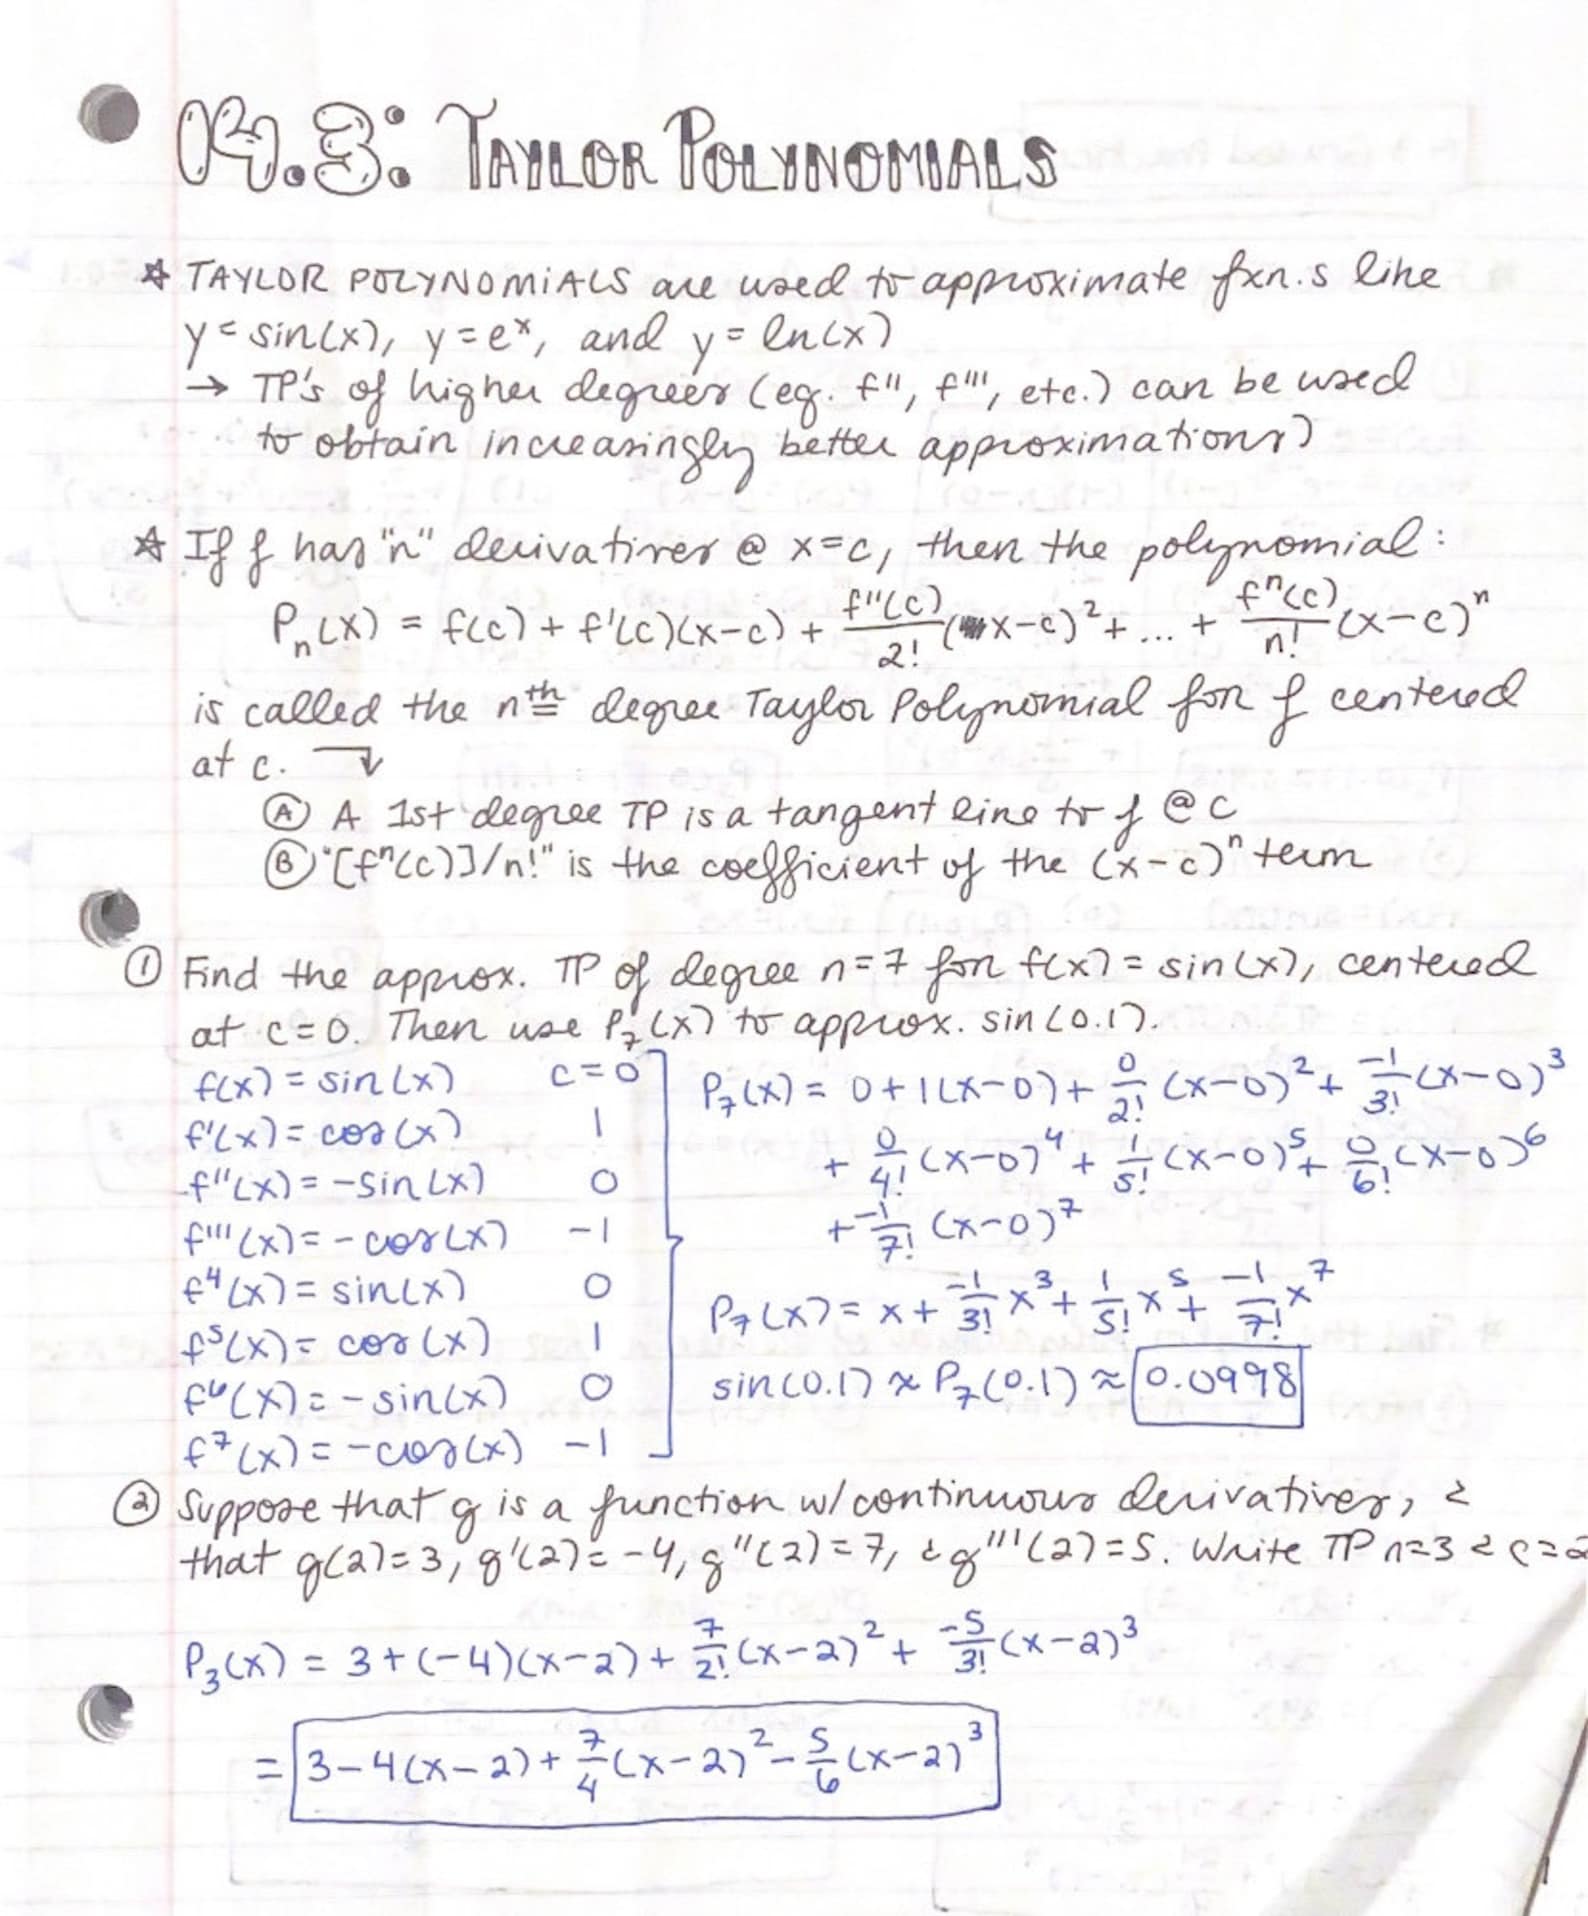 14.3: TAYLOR POLYNOMIALS
☆ TAYLOR POLYNOMIALS are used to approximate fxn.s like
y = sin(x), y = eˣ, and y = ln(x)
→ TP's of higher degrees (eg. f'', f''', etc.) can be used
to obtain increasingly better approximations)
☆ If f has "n" derivatives @ x=c, then the polynomial:
Pₙ(x) = f(c) + f'(c)(x-c) + f''(c)/2! (x-c)² + ... + fⁿ(c)/n! (x-c)ⁿ
is called the nth degree Taylor Polynomial for f centered
at c. ↴
Ⓐ A 1st degree TP is a tangent line to f @ c
Ⓑ "[fⁿ(c)]/n!" is the coefficient of the (x-c)ⁿ term
① Find the approx. TP of degree n=7 for f(x) = sin(x), centered
at c=0. Then use P₇(x) to approx. sin(0.1).
f(x) = sin(x) c=0
f'(x) = cos(x) 1
f''(x) = -sin(x) 0
f'''(x) = -cos(x) -1
f⁴(x) = sin(x) 0
f⁵(x) = cos(x) 1
f⁶(x) = -sin(x) 0
f⁷(x) = -cos(x) -1
P₇(x) = 0 + 1(x-0) + 0/2! (x-0)² + -1/3! (x-0)³
+ 0/4! (x-0)⁴ + 1/5! (x-0)⁵ + 0/6! (x-0)⁶
+ -1/7! (x-0)⁷
P₇(x) = x + -1/3! x³ + 1/5! x⁵ + -1/7! x⁷
sin(0.1) ≈ P₇(0.1) ≈ 0.0998
② Suppose that g is a function w/ continuous derivatives, &
that g(2)=3, g'(2)=-4, g''(2)=7, & g'''(2)=5. Write TP n=3 & c=2
P₃(x) = 3 + (-4)(x-2) + 7/2! (x-2)² + -5/3! (x-2)³
= 3-4(x-2) + 7/4 (x-2)² - 5/6 (x-2)³